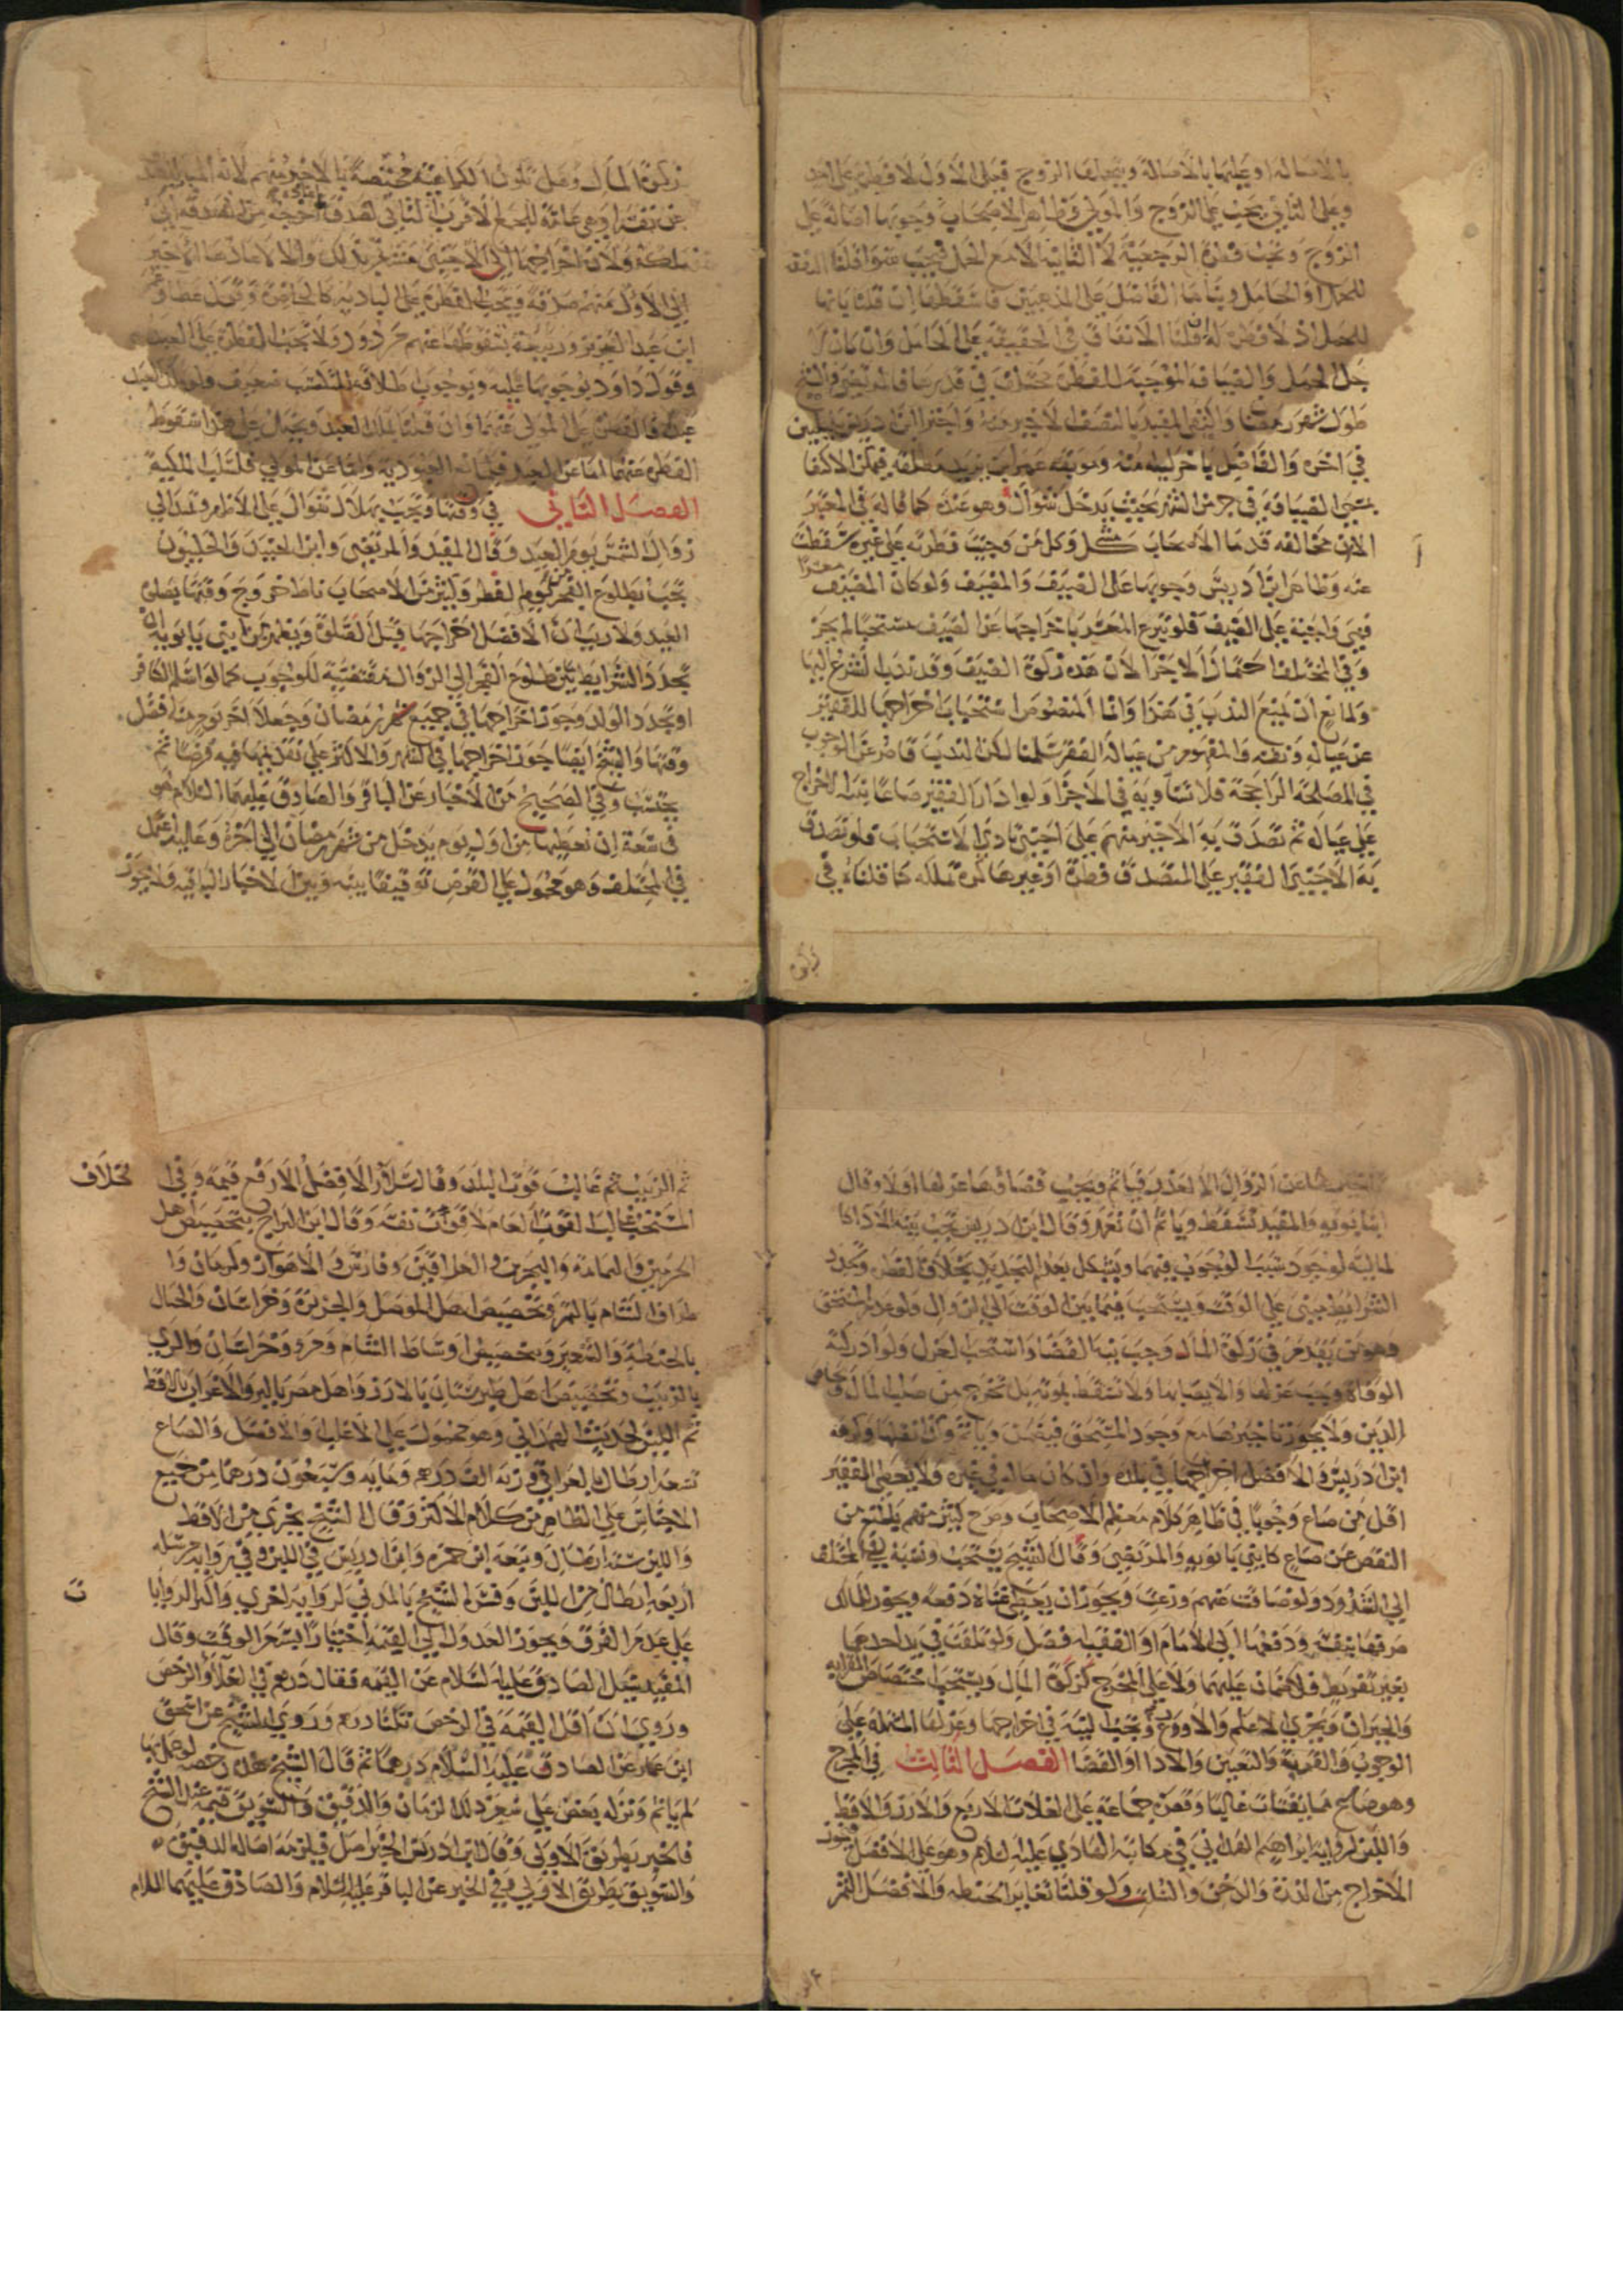 بالاصالة او عليها بالاصالة ويتحملها الزوج فعلى الاول لا فطرة على احد
وعلى الثاني يجب على الزوج والمولى وظاهر الاصحاب وجوبها اصالة على
الزوج وتجب فطرة الرجعية لا البائنة الا مع الحمل فيجب سوا قلنا النفقة
للحمل او للحامل وبناها الفاضل على المذهبين فاسقطها ان قلنا بانها
للحمل اذ لا فطرة له قلنا الانفاق في الحقيقة على الحامل وان كان
جل الحمل والضيافة الموجبة للفطرة مختلف في قدرها فالمرتضى والشيخ
طول شهر رمضان واكتفى المفيد بالنصف الاخير منه واجتزا ابن ادريس بليلتين
في اخره والفاضل باخر ليلة منه
بمسمى الضيافة في جزء من الشهر بحيث يدخل شوال وهو عنده كما قاله في المعتبر
الا ان مخالفة قدما الاصحاب مشكل وكل من وجبت فطرته على غيره سقطت
عنه وظاهر ابن ادريس وجوبها على الضيف والمضيف ولو كان المضيف معسرا
فهي واجبة على الضيف فلو تبرع المعسر باخراجها عن الضيف مستحبا لم يجز
وفي المختلف احتمل الاجزا لان هذه زكوة الضيف وقد ندب الشرع اليها
ولمانع ان يمنع الندب في هذا وانما المنصوص استحباب اخراجها للفقير
عن عياله ونفسه والمفهوم من عياله الفقر سلمنا لكن الندب قاصر عن الوجوب
في المصلحة الراجحة فلا تساويه في الاجزا ولو ادار الفقير صاعا بنية الاخراج
على عياله ثم تصدق به الاخير منهم على اجنبي تادى الاستحباب فلو تصدق
به الاجنبي الفقير على المتصدق فطرة او غيرها كره تملكه كما قلناه في
زكوة المال وهل تكون الكراهية مختصة بالاخير منهم لانه المباشر للصدقة
عن نفسه او هي عامة للجميع الاقرب الثاني لصدق اخراجه من الصدقة الى
ملكه ولان اخراجها الى الاجنبي مشعر بذلك والا لاعادها الاخير
الى الاول منهم صدقة وتجب الفطرة على البادية كالحاضرة وقول عطا وعمر
ابن عبد العزيز وربيعة بسقوطها عنهم مردود ولا تجب الفطرة على العبد
وقول داود بوجوبها عليه وبوجوب اطلاقه للتكسب ضعيف فلو ملك العبد
عبدا فالفطرة على المولى عنهما وان قلنا بملك العبد ويحتمل على هذا سقوط
الفطرة عنهما اما عن العبد فلمانع العبودية واما عن المولى فلسلب الملكية
الفصل الثاني في وقتها وتجب بهلال شوال على الاظهر وتمتد الى
زوال الشمس يوم العيد وقال المفيد والمرتضى وابن الجنيد والحلبيون
تجب بطلوع الفجر من يوم الفطر وكثير من الاصحاب ناط خروج وقتها بصلوة
العيد ولا ريب ان الافضل اخراجها قبل الصلوة ويظهر من ابني بابويه ان
تجدد الشرايط بين طلوع الفجر الى الزوال مقتضية للوجوب كما لو اسلم الكافر
او تجدد الولد وجوزا اخراجها في جميع شهر رمضان وجعلا اخر يوم منه افضل
وقتها والشيخ ايضا جوز اخراجها في الشهر والاكثر على تقديمها فيه قرضا ثم
يحتسب وفي الصحيح من الاخبار عن الباقر والصادق عليهما السلام هو
في سعة ان تعطيها من اول يوم يدخل من شهر رمضان الى اخره وعليه عمل
في المختلف وهو محمول على القرض توفيقا بينه وبين الاخبار الباقية ولا يجوز
تاخيرها عن الزوال الا لعذر فياثم ويجب قضاؤها عزلها او لا وقال
ابنا بابويه والمفيد تسقط وياثم ان تعمد وقال ابن ادريس تجب بنية الادا كا
لمالية لوجود سبب الوجوب فيهما ويشكل بعدم التحديد بخلاف الفطرة وتجدد
الشرايط مبني على الوقت ويستحب فيما بين الوقت الى الزوال فلو عدم المستحق
وهو من تقدم في زكوة المال وجب نية القضا واستحب العزل ولو ادركته
الوفاة وجب عزلها والايصا بها ولا تسقط بموته بل تخرج من صلب المال وتحاص
الدين ولا يجوز تاخيرها مع وجود المستحق فيضمن وياثم وكذا نقلها وكرهه
ابن ادريس والافضل اخراجها في بلده وان كان ماله في غيره ولا يعطى الفقير
اقل من صاع وجوبا في ظاهر كلام معظم الاصحاب وصرح كثير منهم بالمنع من
النقص عن صاع كابني بابويه والمرتضى وقال الشيخ يستحب ونسبه في المختلف
الى الشذوذ ولو ضاقت عنهم وزعت ويجوز ان يعطى غناه دفعة ويجوز للمالك
صرفها بنفسه ودفعها الى الامام او الفقيه افضل ولو تلفت في يد احدهما
بغير تفريط فلا ضمان عليهما ولا على المخرج كزكوة المال ويستحب اختصاص القرابة
والجيران ويجزي الاعلم والاورع وتجب النية في اخراجها وعزلها المشتملة على
الوجوب والقربة والتعيين والادا او القضا الفصل الثالث في المخرج
وهو صاع مما يقتات غالبا وقصره جماعة على الغلات الاربع والارز والاقط
واللبن لرواية ابراهيم الهمداني في مكاتبة الهادي عليه السلام وهو على الافضل فيجوز
الاخراج من الذرة والدخن والسلت ولو قلنا بمغايرة الحنطة والافضل التمر
ثم الزبيب ثم غالب قوت البلد وقال سلار الافضل الارفع قيمة وفي الخلاف
المستحب غالب القوت العام لا قوت نفسه وقال ابن البراج بتخصيص اهل
الحرمين واليمامة والبحرين والعراقين وفارس والاهواز وكرمان وا
طراف الشام بالتمر وتخصيص اهل الموصل والجزيرة وخراسان والجبال
بالحنطة والشعير وتخصيص اوساط الشام ومرو وخراسان والري
بالزبيب وتخصيص اهل طبرستان بالارز واهل مصر بالبر والاعراب بالاقط
ثم اللبن لحديث الهمداني وهو محمول على الاغلب والافضل والصاع
تسعة ارطال بالعراقي وزنة الف درهم وماية وسبعون درهما من جميع
الاجناس على الظاهر من كلام الاكثر وقال الشيخ يجزي من الاقط
واللبن ستة ارطال وتبعه ابن حمزة وابن ادريس في اللبن وفي رواية مرسلة
اربعة ارطال من اللبن وفسره الشيخ بالمدني لرواية اخرى واكثر الروايا
ت
على عدم الفرق ويجوز العدول الى القيمة اختيارا بسعر الوقت وقال
المفيد سئل الصادق عليه السلام عن القيمة فقال درهم في الغلا والرخص
وروي ان اقل القيمة في الرخص ثلثا درهم وروى الشيخ عن اسحق
ابن عمار عن الصادق عليه السلام درهما ثم قال الشيخ هذه رخصة لو عمل بها
لم ياثم ونزله بعض على سعر ذلك الزمان والدقيق والسويق قيمة عند الشيخ
فالخبز بطريق الاولى وقال ابن ادريس الخبز اصل فيلزمه اصالة الدقيق
والسويق بطريق الاولى وفي الخبر عن الباقر عليه السلام والصادق عليهما السلام